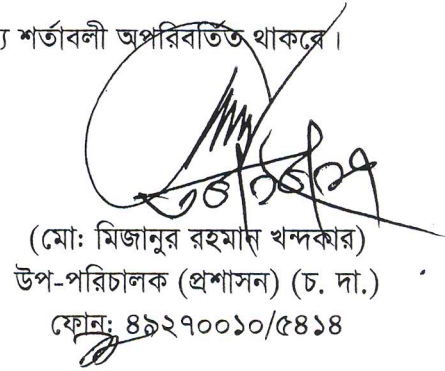 ্য শর্তাবলী অপরিবর্তিত থাকবে।
(মো: মিজানুর রহমান খন্দকার)
উপ-পরিচালক (প্রশাসন) (চ. দা.)
ফোন: ৪৯২৭০০১০/৫৪১৪